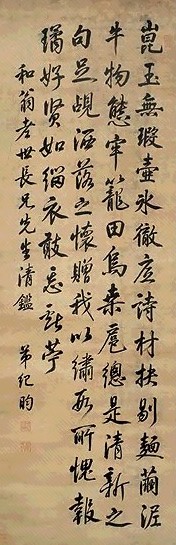 崑玉無瑕壺冰徹底詩材抉剔麵繭泥
牛物態牢籠田烏桑扈總是清新之
句足覘洒落之懷贈我以繡段所愧報
璚好賢如緇衣敢忘献苧
和翁老世長兄先生清鑑 弟紀昀